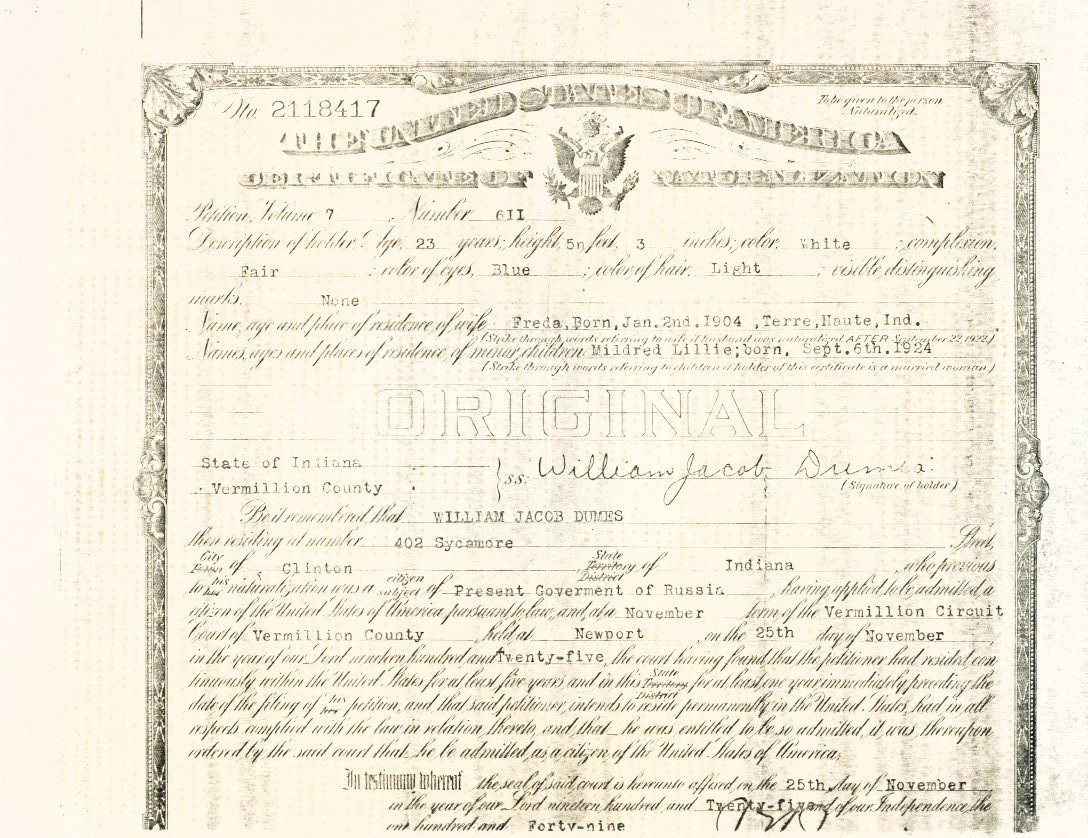 No. 2118417
To be given to the person
Naturalized.
THE UNITED STATES OF AMERICA
CERTIFICATE OF NATURALIZATION
Petition, Volume 7 , Number 6II
Description of holder: Age, 23 years; height, 5n feet, 3 inches; color, White ; complexion,
Fair ; color of eyes, Blue ; color of hair, Light ; visible distinguishing
marks, None
Name, age and place of residence of wife Freda,Born,Jan.2nd.1904 ,Terre,Haute,Ind.
(Strike through words referring to wife if husband was naturalized AFTER September 22, 1922.)
Names, ages and places of residence of minor children Mildred Lillie;born, Sept.6th.1924
(Strike through words referring to children if holder of this certificate is a married woman.)
ORIGINAL
State of Indiana
Vermillion County
S.S: William Jacob Dumes
(Signature of holder)
Be it remembered that WILLIAM JACOB DUMES
then residing at number 402 Sycamore Street,
City
Town of Clinton , State
Territory
District of Indiana , who previous
to his
her naturalization was a citizen
subject of Present Goverment of Russia , having applied to be admitted a
citizen of the United States of America pursuant to law, and, at a November term of the Vermillion Circuit
Court of Vermillion County , held at Newport , on the 25th day of November
in the year of our Lord nineteen hundred and Twenty-five, the court having found that the petitioner had resided con
tinuously within the United States for at least five years and in this State
Territory
District for at least one year immediately preceding the
date of the filing of his
her petition, and that said petitioner intends to reside permanently in the United States, had in all
respects complied with the law in relation thereto, and that he was entitled to be so admitted, it was thereupon
ordered by the said court that he be admitted as a citizen of the United States of America.
In testimony whereof the seal of said court is hereunto affixed on the 25th, day of November
in the year of our Lord nineteen hundred and Twenty-five and of our Independence the
one hundred and Forty-nine